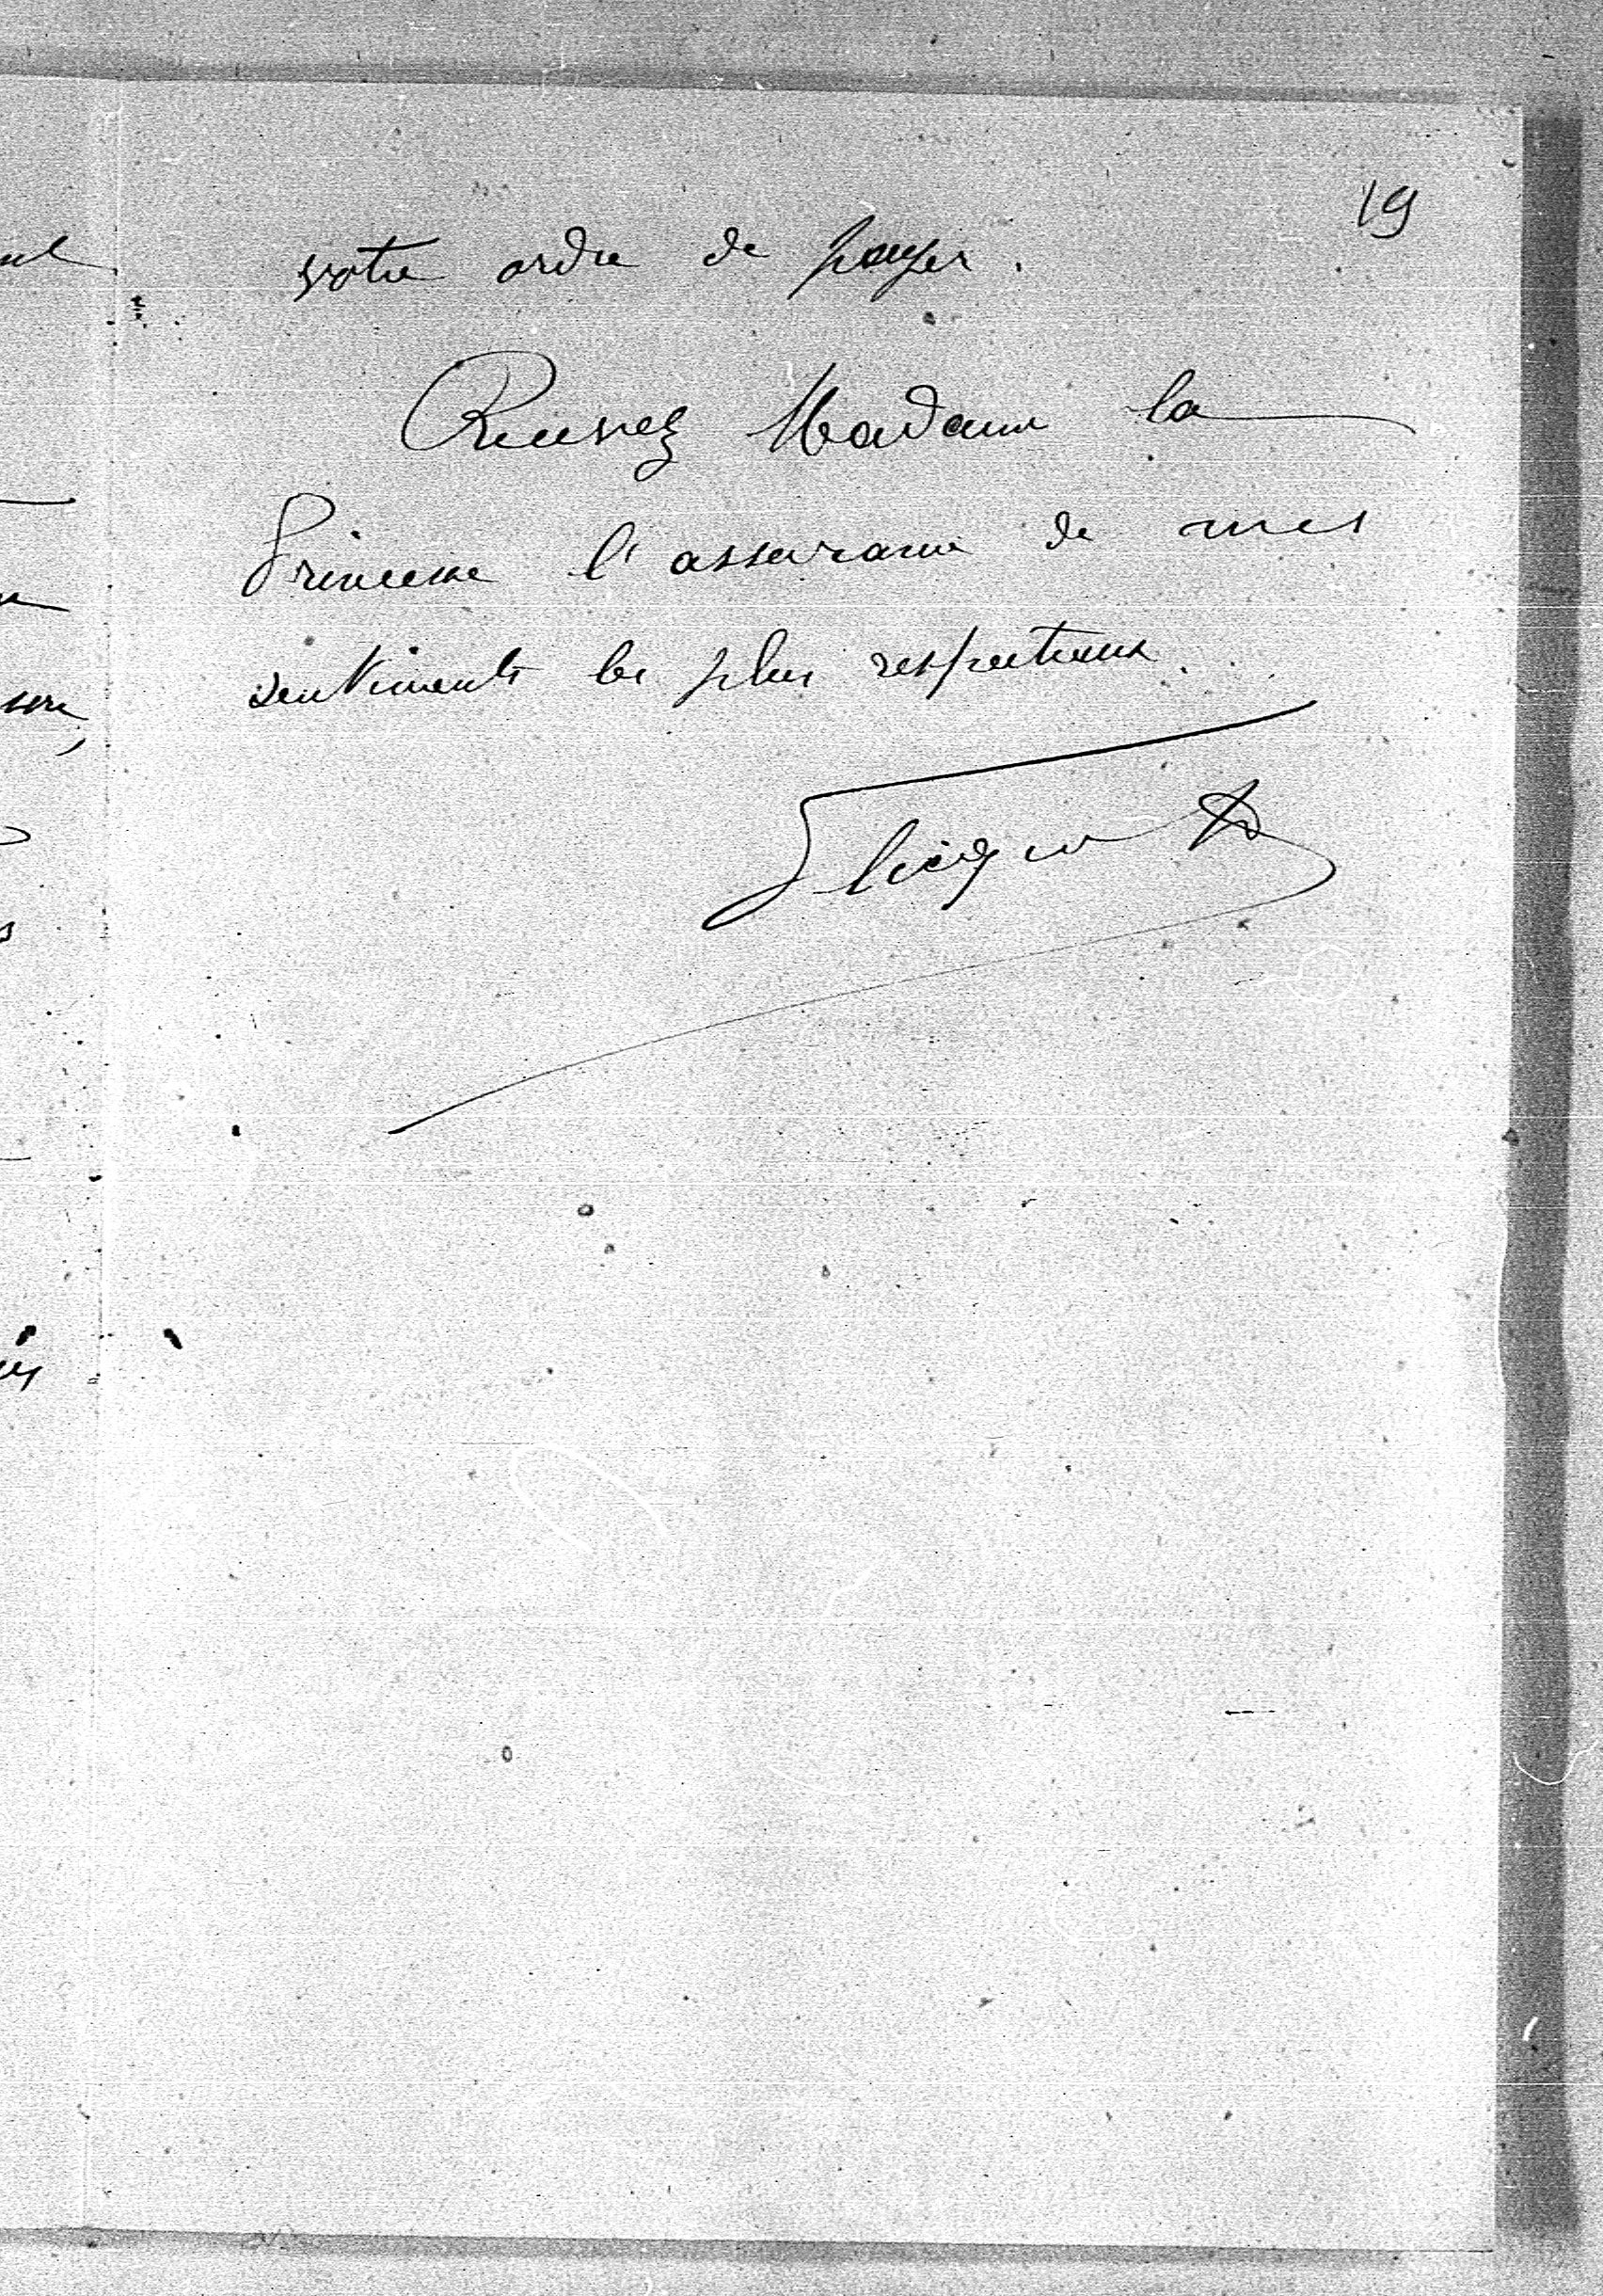 19
votre ordre de payer.
Recevez Madame la
Princesse l'assurance de mes
sentiments les plus respectueux.